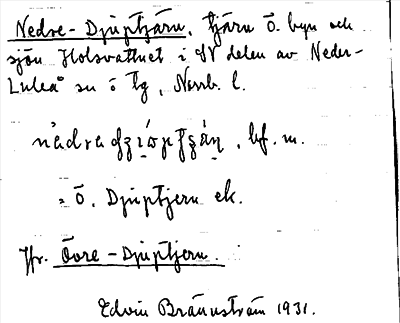 Nedre-Djuptjärn, tjärn ö. byn och
sjön Holsvattnet i SV delen av Neder-
Luleå sn ö tg, Norrb. l.
, bf. m.
= Ö. Djuptjern ek.
Jfr. Övre-Djuptjern.
Edvin Brännström 1931.